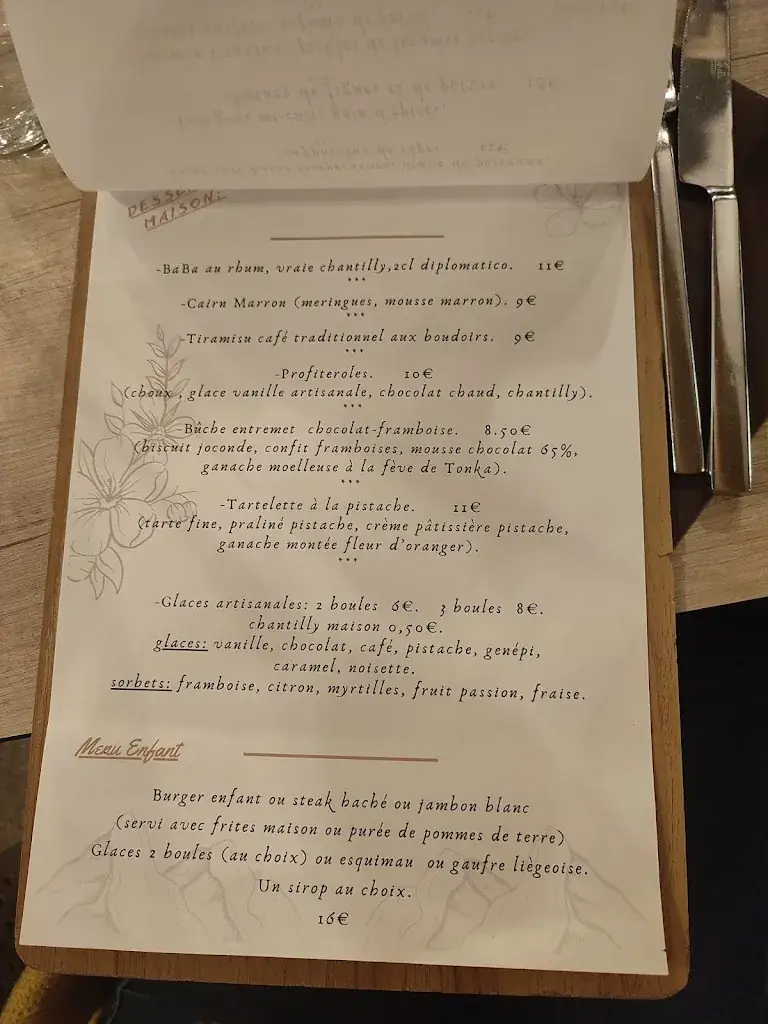 DESSE
MAISON:
-BaBa au rhum, vraie chantilly,2cl diplomatico. 11€
***
-Cairn Marron (meringues, mousse marron). 9€
***
-Tiramisu café traditionnel aux boudoirs. 9€
***
-Profiteroles. 10€
(choux , glace vanille artisanale, chocolat chaud, chantilly).
***
-Bûche entremet chocolat-framboise. 8.50€
(biscuit joconde, confit framboises, mousse chocolat 65%,
ganache moelleuse à la fève de Tonka).
***
-Tartelette à la pistache. 11€
(tarte fine, praliné pistache, crème pâtissière pistache,
ganache montée fleur d'oranger).
***
-Glaces artisanales: 2 boules 6€. 3 boules 8€.
chantilly maison 0,50€.
glaces: vanille, chocolat, café, pistache, genépi,
caramel, noisette.
sorbets: framboise, citron, myrtilles, fruit passion, fraise.
Menu Enfant
Burger enfant ou steak haché ou jambon blanc
(servi avec frites maison ou purée de pommes de terre)
Glaces 2 boules (au choix) ou esquimau ou gaufre liègeoise.
Un sirop au choix.
16€